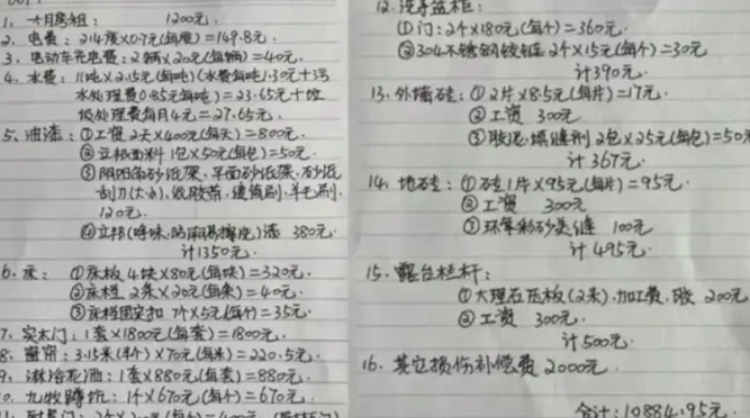 1、十月房租：1200元.
2、电费：214度×0.7元(每度)=149.8元.
3、电动车充电费：2辆×20元(每辆)=40元.
4、水费：11吨×2.15元(每吨)(水费每吨1.30元+污
水处理费0.85元每吨)=23.65元+垃
圾处理费每月4元=27.65元.
5、油漆：①工资2天×400元(每天)=800元.
②立邦面料1包×50元(每包)=50元.
③阴阳角砂纸架、平面砂纸架、砂纸
刮刀(大、小)、纸胶带、滚筒刷、羊毛刷.
120元.
④立邦(净味 )漆 380元.
计1350元.
6、床：①床板4块×80元(每块)=320元.
②床档2条×20元(每条)=40元.
③床档固定扣7个×5元(每个)=35元.
7、实木门：1套×1800元(每套)=1800元.
8、窗帘：3.15米(半个)×70元(每米)=220.5元.
9、淋浴花洒：1套×880元(每套)=880元.
0、九牧蹲坑：1个×670元(每个)=670元.
12.洗手盆柜：
①门：2个×180元(每个)=360元.
②304不锈钢铰链2个×15元(每个)=30元
计390元.
13.外墙砖：①2片×8.5元(每片)=17元.
②工资 300元
③胶泥、填缝剂2包×25元(每包)=50元
计367元.
14、地砖：①砖1片×95元(每片)=95元.
②工资 300元
③环氧彩砂美缝 100元
计495元.
15、露台栏杆：
①大理石压板(2米),加工费、胶 200元
②工资 300元.
计500元.
16、其它损伤补偿费2000元.
合计:10884.95元.